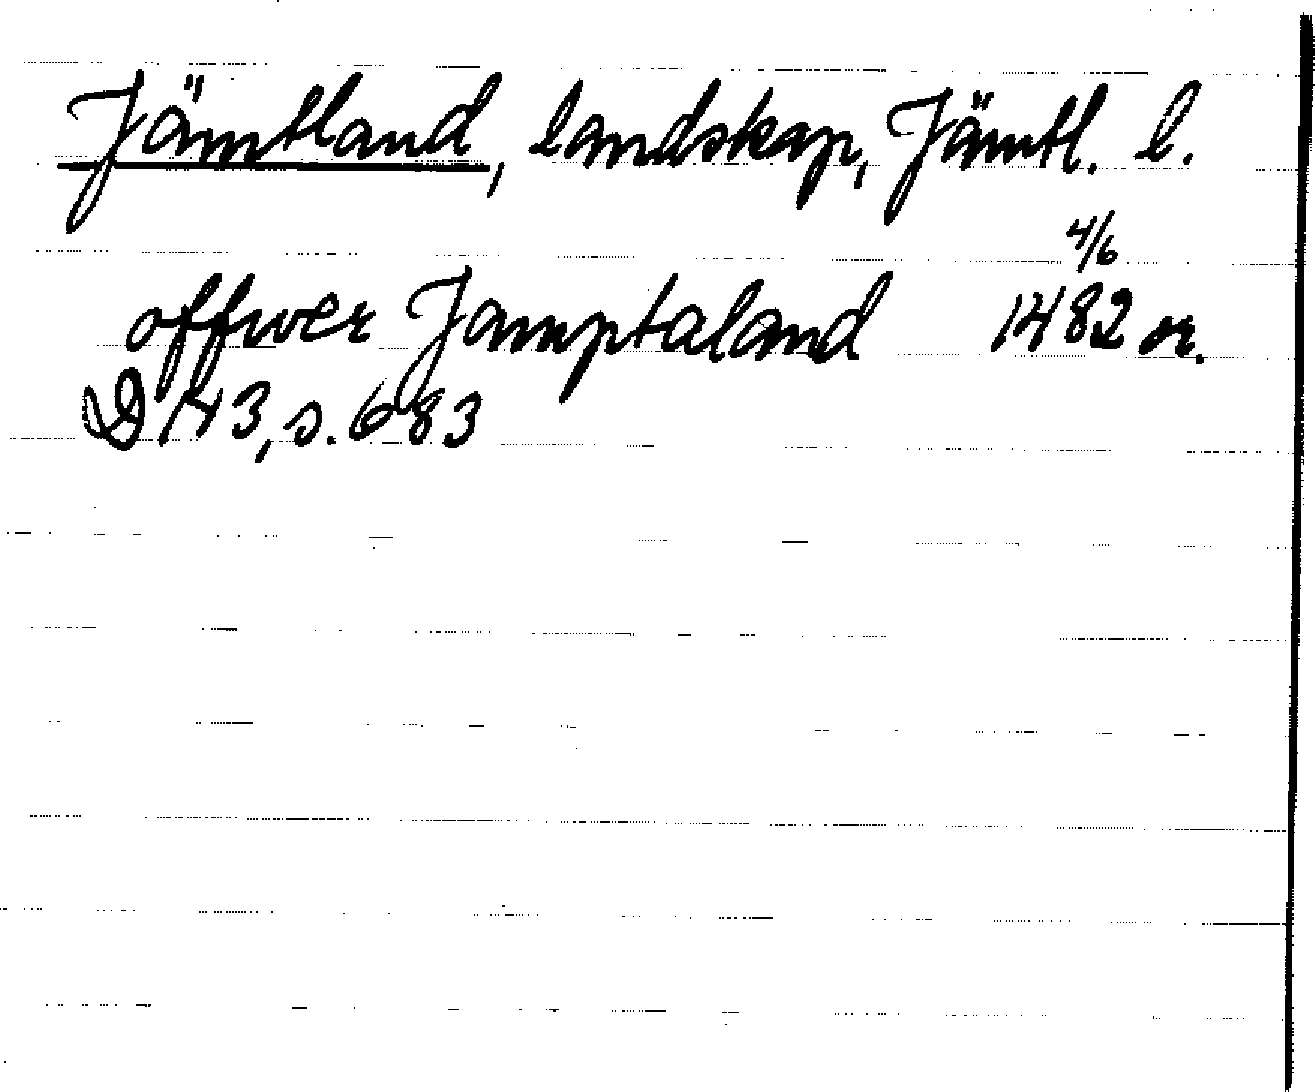 Jämtland, landskap, Jämtl. l.
4/6
offwer Jamptaland 1482 or.
D 143, s. 683